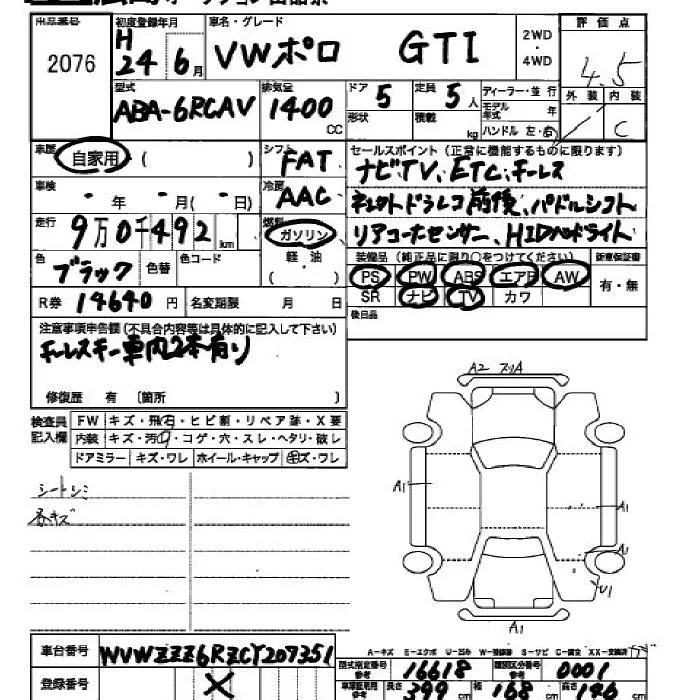 出品番号 初度登録年月 車名・グレード 2WD・4WD 評価点
2076 H 24 6月 VWポロ GTI 4.5
型式 排気量 ドア 定員 ディーラー・並行 外装 内装
ABA-6RCAV 1400 CC 5 5人 モデル年式 年
形状 積載 kg ハンドル 左・右 C
車歴 自家用 ( ) シフト FAT セールスポイント (正常に機能するものに限ります)
ナビTV、ETC、キーレス
車検 ・年 ・月(・日) 冷房 AAC ドラレコ前後、パドルシフト
走行 9万0千492km 燃料 ガソリン リアコーナーセンサー、HIDヘッドライト
色 ブラック 色替 色コード 軽油 ( ) 装備品 (純正品に限り○をつけてください) 新車保証書
PS PW ABS エアB AW 有・無
R券 14640円 名変期限 月 日 SR ナビ TV カワ
注意事項申告欄(不具合内容等は具体的に記入して下さい) 後日品
キーレスキー車内2本有り
修復歴 有 〔箇所 〕
A2
検査員記入欄 FW キズ・飛石・ヒビ割・リペア跡・X要
内装 キズ・汚れ・コゲ・穴・スレ・ヘタリ・破レ
ドアミラー キズ・ワレ ホイール・キャップ キズ・ワレ
シートシミ
A1 A1
A1
U1
A1
車台番号 WVWZZZ6RZCY207351
A-キズ E-エクボ U-凹み W-補修跡 S-サビ C-腐食 XX-交換済
型式指定番号 参考 16618 類別区分番号 参考 0001
登録番号 X 車庫証明用 参考 長さ 399cm 幅 168cm 高さ 146cm